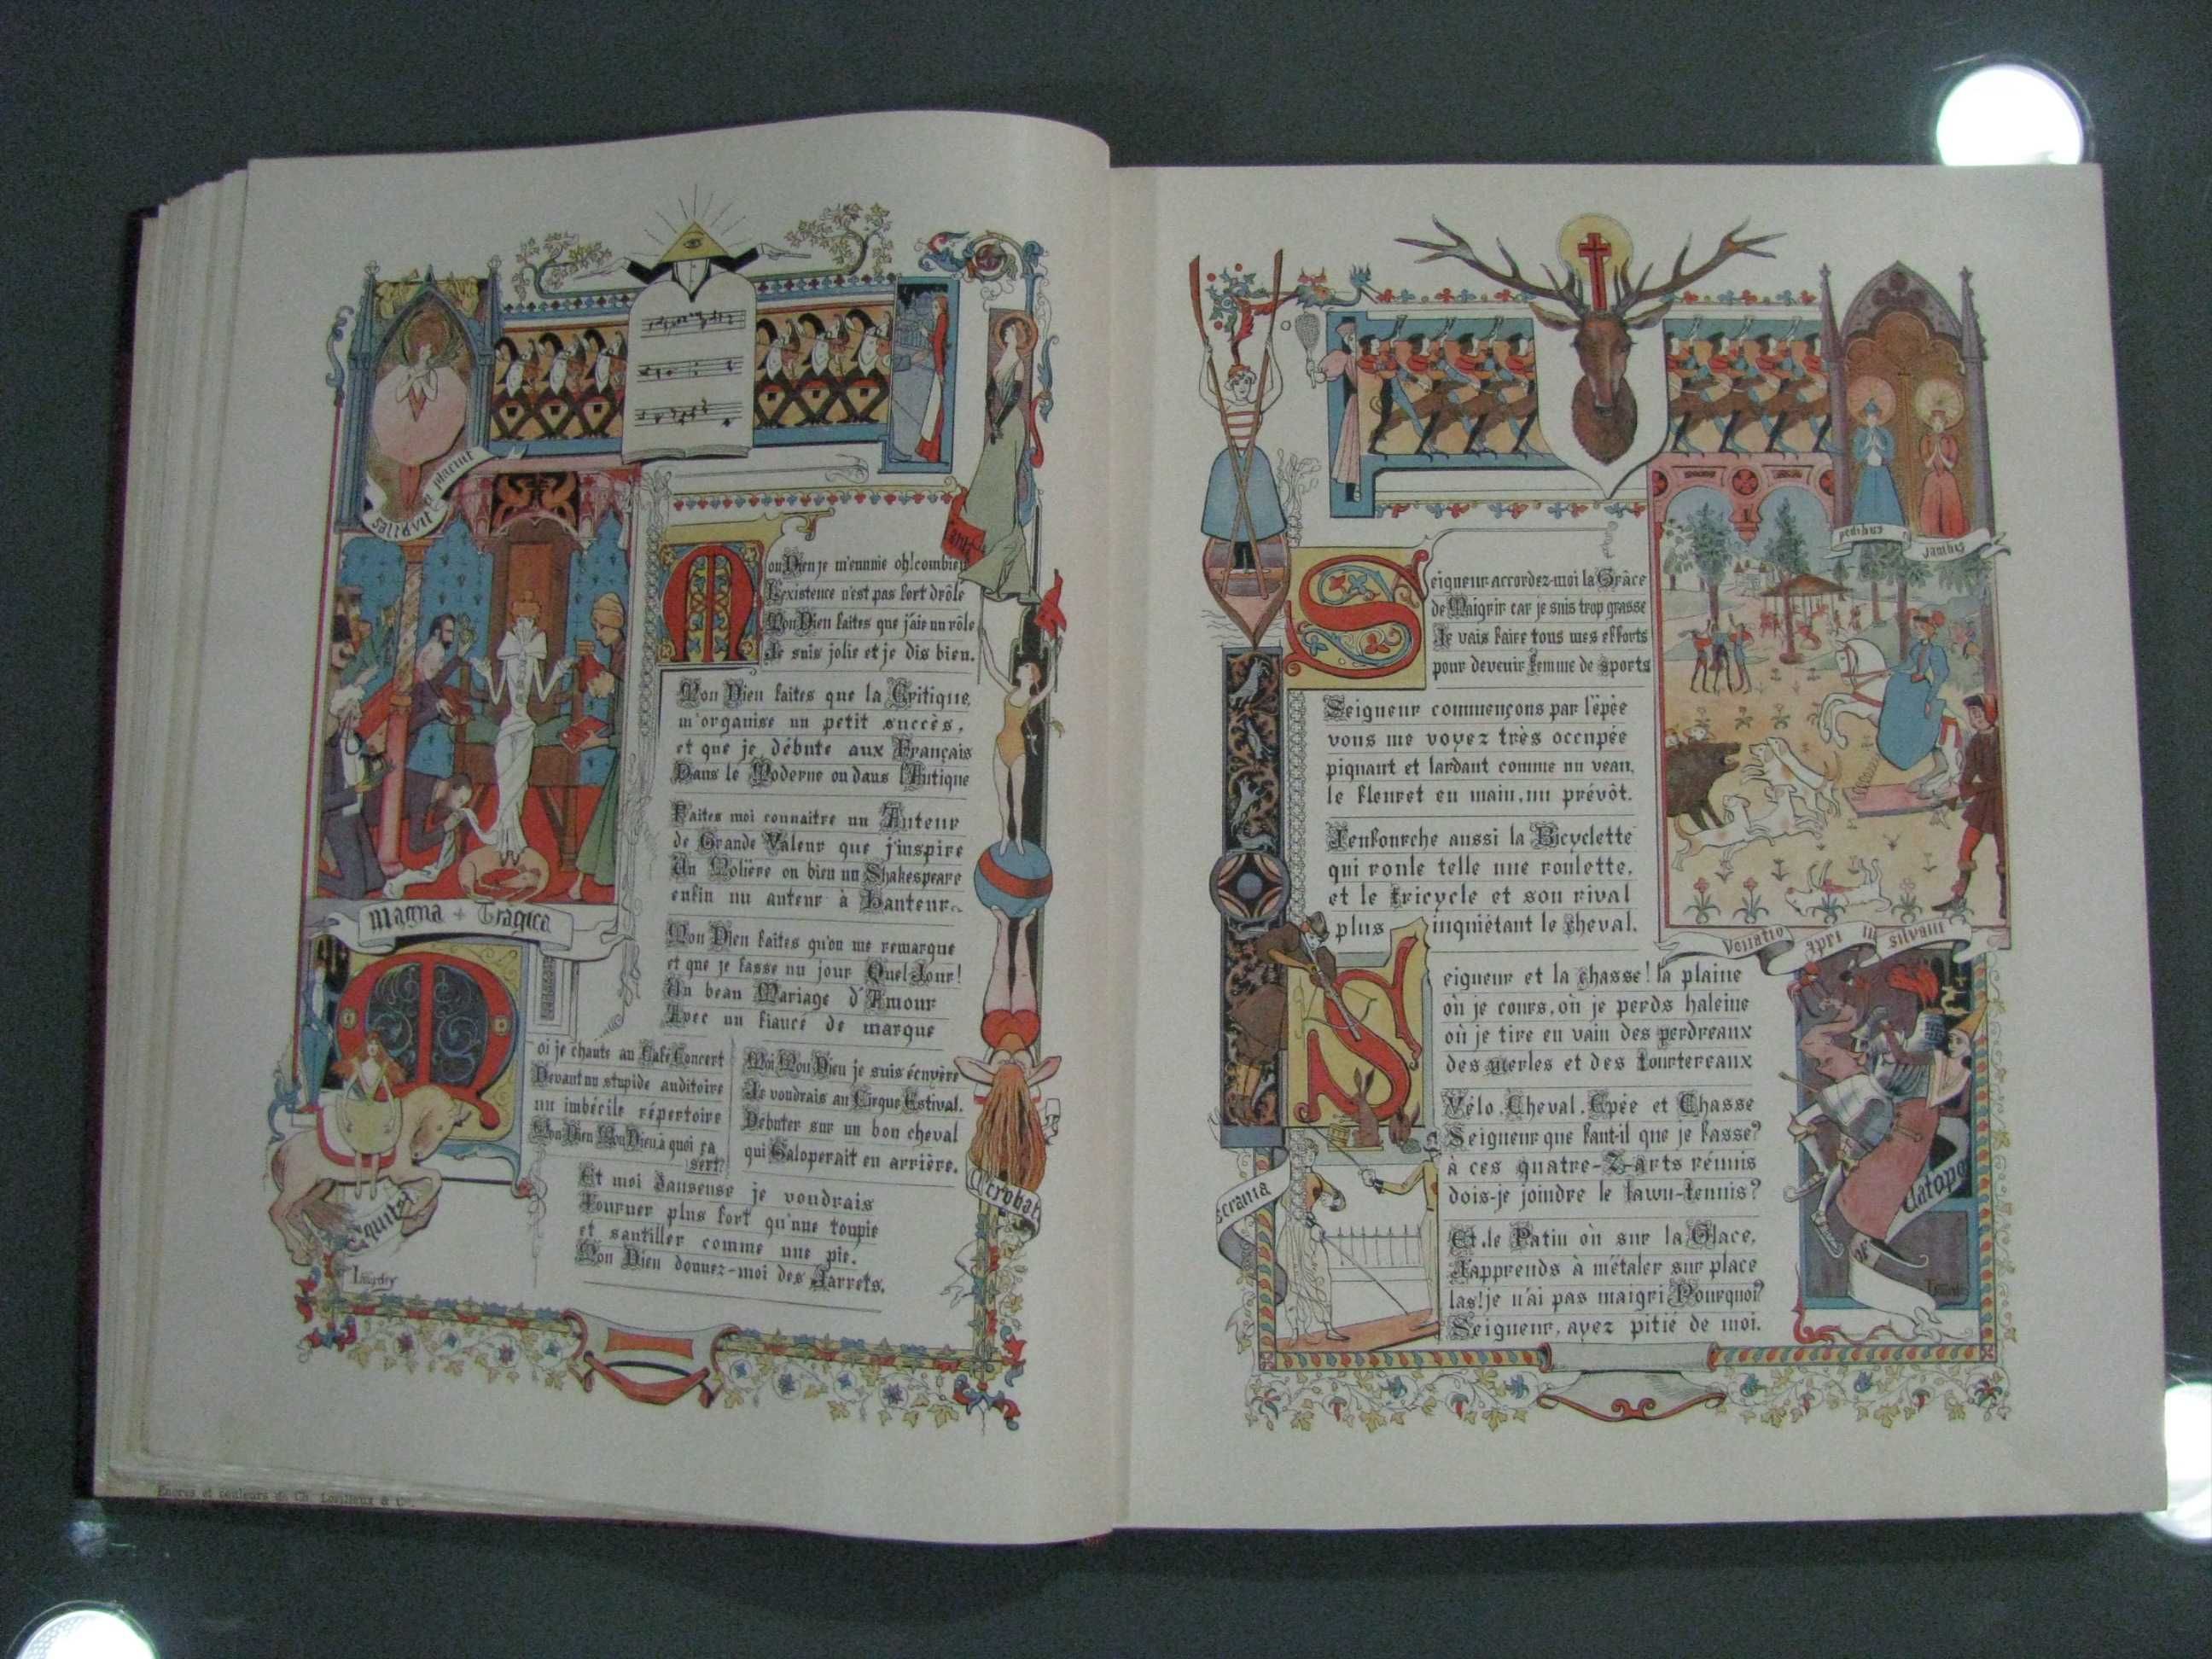 Saltavit et placuit
Magna + Tragica
Mon Dien je m'ennnie oh! combien
L'existence n'est pas fort drôle
Mon Dieu faites que j'aie un rôle
Je suis jolie et je dis bien.
Mon Dieu faites que la Critique,
m'organise un petit succès,
et que je débute aux Français
Dans le Moderne ou dans l'Antique
Faites moi connaitre un Auteur
de Grande Valeur que j'inspire
Un Molière ou bien un Shakespeare
enfin un auteur à Hauteur.
Mon Dieu faites qu'on me remarque
et que je fasse un jour Quel Jour!
Un beau Mariage d'Amour
Avec un fiancé de marque
Moi je chante au Café Concert
Devant un stupide auditoire
un imbécile répertoire
Mon Dieu Mon Dieu à quoi ça
sert?
Moi Mon Dieu je suis écuyère
Je voudrais au Cirque Estival.
Débuter sur un bon cheval
qui Galoperait en arrière.
Et moi Danseuse je voudrais
Tourner plus fort qu'une toupie
et sautiller comme une pie.
Mon Dieu donnez-moi des Jarrets.
Equita
Acrobat
Encres et couleurs de Ch. Lorilleux & Cie.
Seigneur accordez-moi la Grâce
de Maigrir car je suis trop grasse
Je vais faire tous mes efforts
pour devenir femme de sports
Seigneur commençons par l'épée
vous me voyez très occupée
piquant et lardant comme un veau,
le fleuret en main, un prévôt.
J'enfourche aussi la Bicyclette
qui roule telle une roulette,
et le tricycle et son rival
plus inquiétant le cheval.
Seigneur et la chasse! la plaine
où je cours, où je perds haleine
où je tire en vain des perdreaux
des merles et des tourtereaux
Vélo, Cheval, Epée et Chasse
Seigneur que faut-il que je fasse?
à ces quatre-Z-arts réunis
dois-je joindre le lawn-tennis?
Et le Patin où sur la Glace,
J'apprends à m'étaler sur place
las! je n'ai pas maigri Pourquoi?
Seigneur, ayez pitié de moi.
pedibus
Jambis
Venatio apri in silvam
scrama